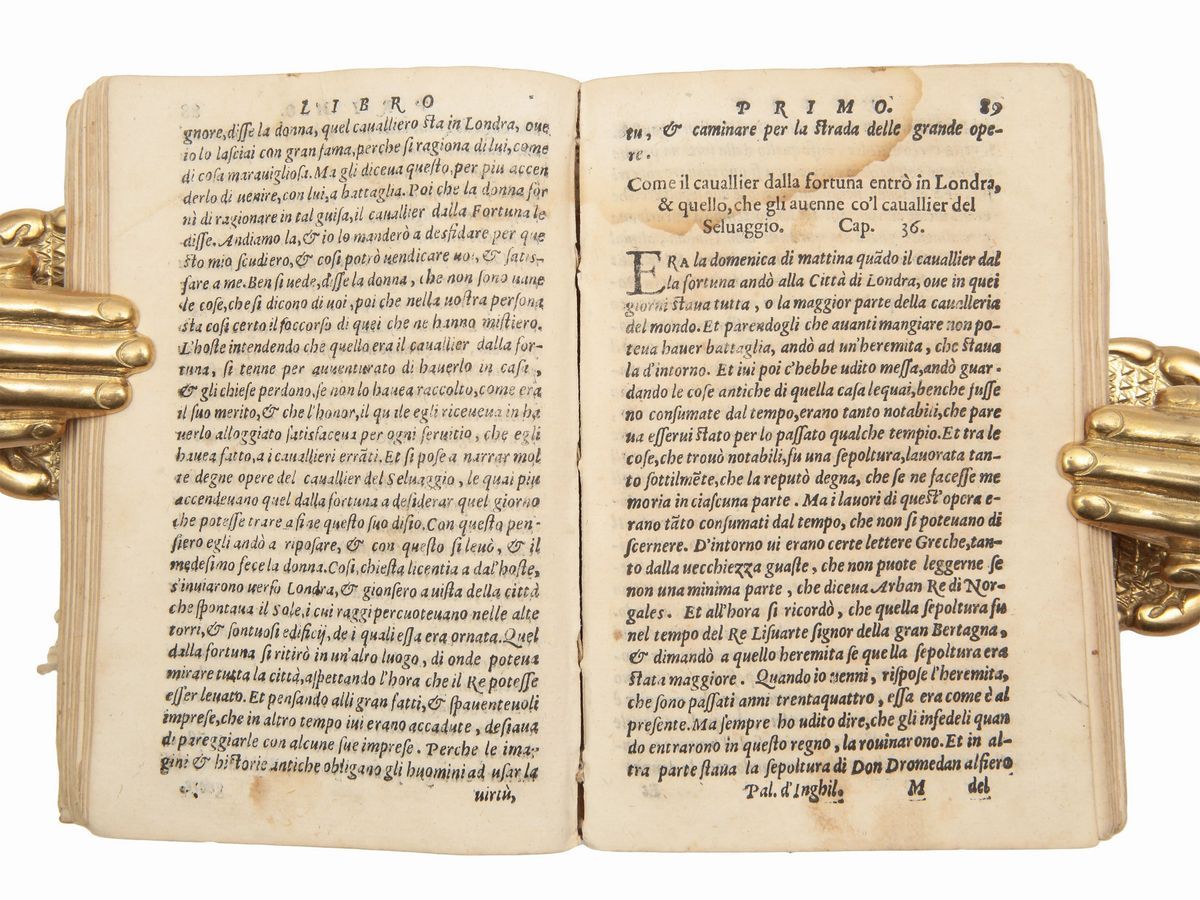 LIBRO
gnore, disse la donna, quel caualliero sta in Londra, oue
io lo lasciai con gran fama, perche si ragiona di lui, come
di cosa marauigliosa. Ma gli diceua questo, per piu accen
derlo di uenire, con lui, a battaglia. Poi che la donna for
nì di ragionare in tal guisa, il cauallier dalla Fortuna le
disse. Andiamo la, & io lo manderò a desfidare per que
sto mio scudiero, & cosi potrò uendicare uoi, & satis-
fare a me. Ben si uede, disse la donna, che non sono uane
le cose, che si dicono di uoi, poi che nella uostra persona
sta cosi certo il soccorso di quei che ne hanno mistiero.
L'hoste intendendo che quello era il cauallier dalla for-
tuna, si tenne per auuenturato di hauerlo in casa,
& gli chiese perdono, se non lo hauea raccolto, come era
il suo merito, & che l'honor, il quale egli riceueua in ha
uerlo alloggiato satisfaceua per ogni seruitio, che egli
hauea fatto, a i cauallieri errãti. Et si pose a narrar mol
te degne opere del cauallier del Seluaggio, le quai piu
accendeuano quel dalla fortuna a desiderar quel giorno
che potesse trare a fine questo suo disio. Con questo pen-
siero egli andò a riposare, & con questo si leuò, & il
medesimo fece la donna. Cosi, chiesta licentia a dal'hoste,
s'inuiarono uerso Londra, & gionsero a uista della città
che spontaua il Sole, i cui raggi percuoteuano nelle alte
torri, & sontuosi edificij, de i quali essa era ornata. Quel
dalla fortuna si ritirò in un'altro luogo, di onde poteua
mirare tutta la città, aspettando l'hora che il Re potesse
esser leuato. Et pensando alli gran fatti, & spauenteuoli
imprese, che in altro tempo iui erano accadute, desiaua
di pareggiarle con alcune sue imprese. Perche le ima-
gini & historie antiche obligano gli huomini ad usar la
uirtù,
PRIMO. 89
tu, & caminare per la strada delle grande ope-
re.
Come il cauallier dalla fortuna entrò in Londra,
& quello, che gli auenne co'l cauallier del
Seluaggio. Cap. 36.
ERA la domenica di mattina quãdo il cauallier dal
la fortuna andò alla Città di Londra, oue in quei
giorni staua tutta, o la maggior parte della caualleria
del mondo. Et parendogli che auanti mangiare non po-
teua hauer battaglia, andò ad un'heremita, che staua
la d'intorno. Et iui poi c'hebbe udito messa, andò guar-
dando le cose antiche di quella casa lequai, benche fusse
no consumate dal tempo, erano tanto notabili, che pare
ua esserui stato per lo passato qualche tempio. Et tra le
cose, che trouò notabili, fu una sepoltura, lauorata tan-
to sottilmẽte, che la reputò degna, che se ne facesse me
moria in ciascuna parte. Ma i lauori di quest'opera e-
rano tãto consumati dal tempo, che non si poteuano di
scernere. D'intorno ui erano certe lettere Greche, tan-
to dalla uecchiezza guaste, che non puote leggerne se
non una minima parte, che diceua Arban Re di Nor-
gales. Et all'hora si ricordò, che quella sepoltura fu
nel tempo del Re Lisuarte signor della gran Bertagna,
& dimandò a quello heremita se quella sepoltura era
stata maggiore. Quando io uenni, rispose l'heremita,
che sono passati anni trentaquattro, essa era come è al
presente. Ma sempre ho udito dire, che gli infedeli quan
do entrarono in questo regno, la rouinarono. Et in al-
tra parte staua la sepoltura di Don Dromedan alfiero
Pal. d'Inghil. M del